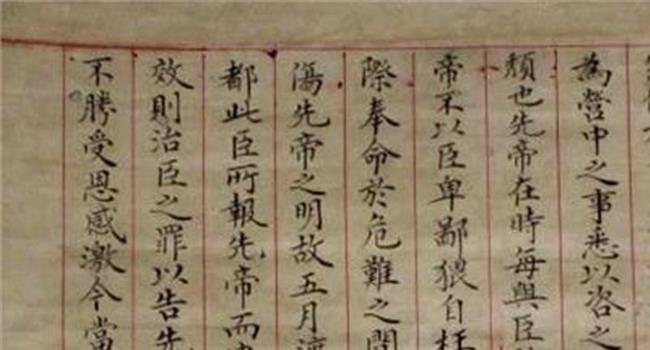 為營中之事悉以咨之
頹也先帝在時每與臣
帝不以臣卑鄙猥自枉
際奉命於危難之間
傷先帝之明故五月渡
都此臣所報先帝而
效則治臣之罪以告先
不勝受恩感激今當